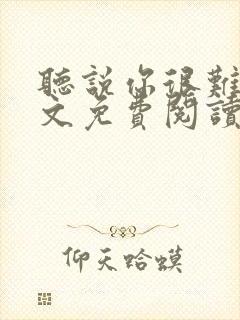 聽說你很難
文免費閱讀
仰天哈蟆